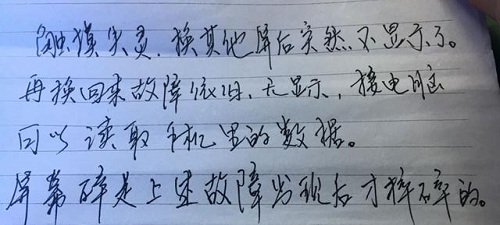 触摸失灵，换其他屏后突然不显示了。
再换回来故障依旧，无显示，接电脑
可以读取手机里的数据。
屏幕碎是上述故障出现后才摔碎的。